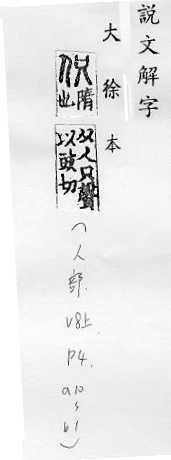 説文解字
大徐本
伿
隋也
从人只聲
以豉切
(人部. V8上. P4. a10 s b1)